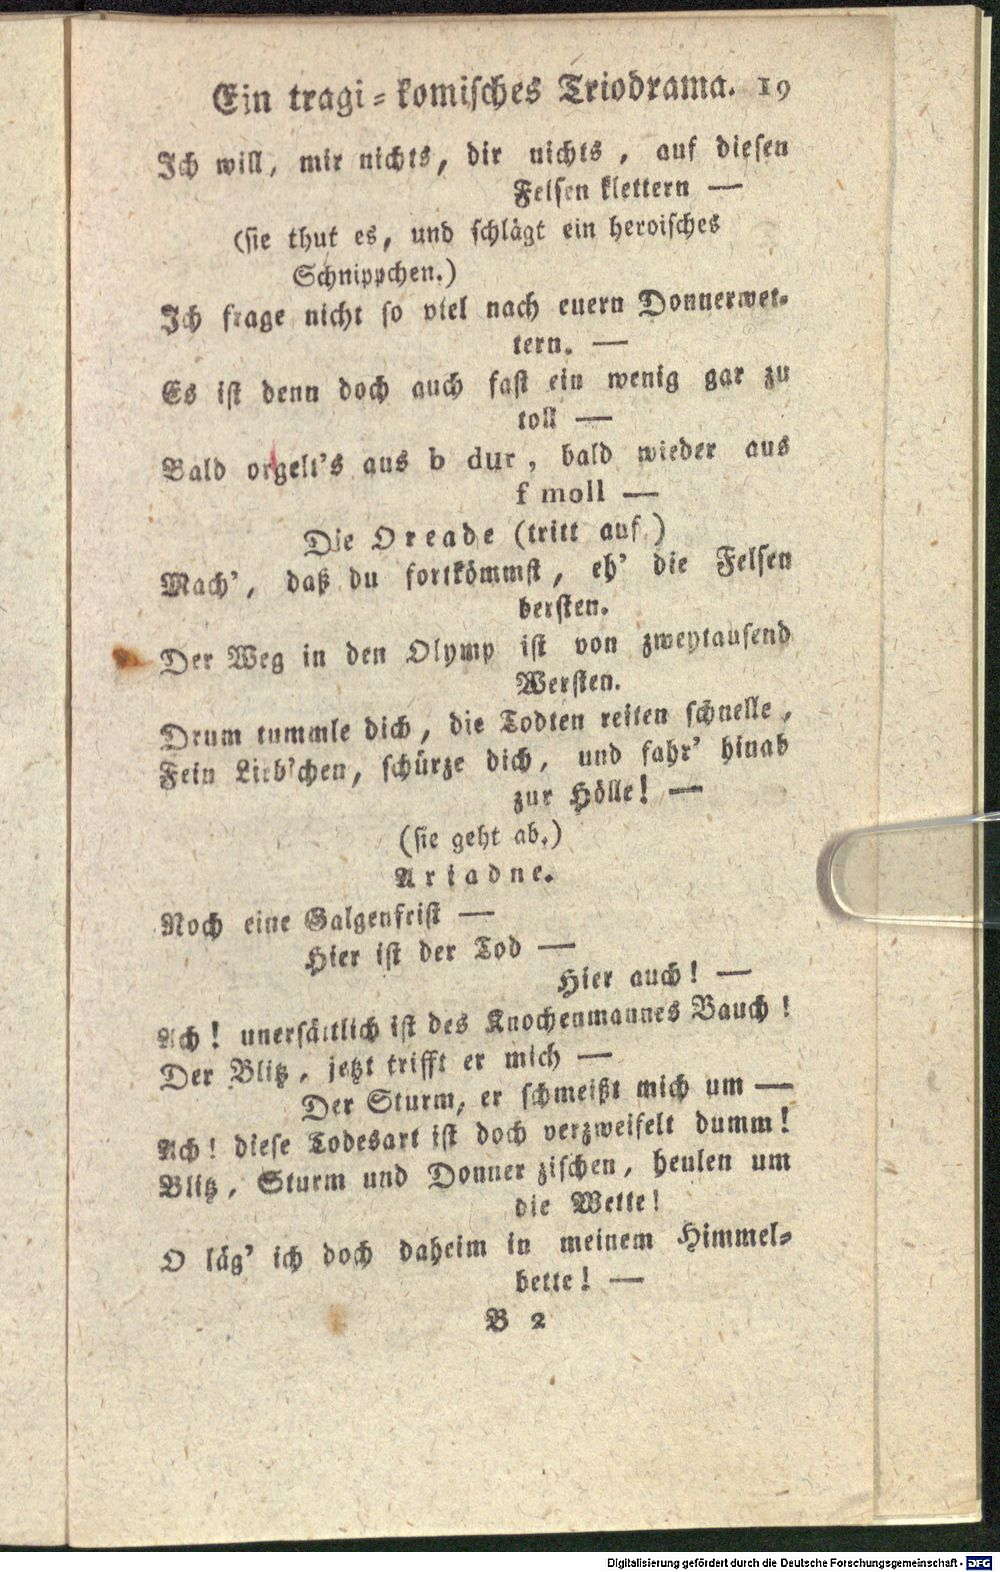 Ein tragi-komisches Triodrama. 19
Ich will, mir nichts, dir nichts, auf diesen
Felsen klettern —
(sie thut es, und schlägt ein heroisches
Schnippchen.)
Ich frage nicht so viel nach euern Donnerwet-
tern. —
Es ist denn doch auch fast ein wenig gar zu
toll —
Bald orgelt's aus b dur, bald wieder aus
f moll —
Die Oreade (tritt auf.)
Mach', daß du fortkömmst, eh' die Felsen
bersten.
Der Weg in den Olymp ist von zweytausend
Wersten.
Drum tummle dich, die Todten reiten schnelle,
Fein Lieb'chen, schürze dich, und fahr' hinab
zur Hölle! —
(sie geht ab.)
Ariadne.
Noch eine Galgenfrist —
Hier ist der Tod —
Hier auch! —
Ach! unersättlich ist des Knochenmannes Bauch!
Der Blitz, jetzt trifft er mich —
Der Sturm, er schmeißt mich um —
Ach! diese Todesart ist doch verzweifelt dumm!
Blitz, Sturm und Donner zischen, heulen um
die Wette!
O läg' ich doch daheim in meinem Himmel-
bette! —
B 2
Digitalisierung gefördert durch die Deutsche Forschungsgemeinschaft - DFG